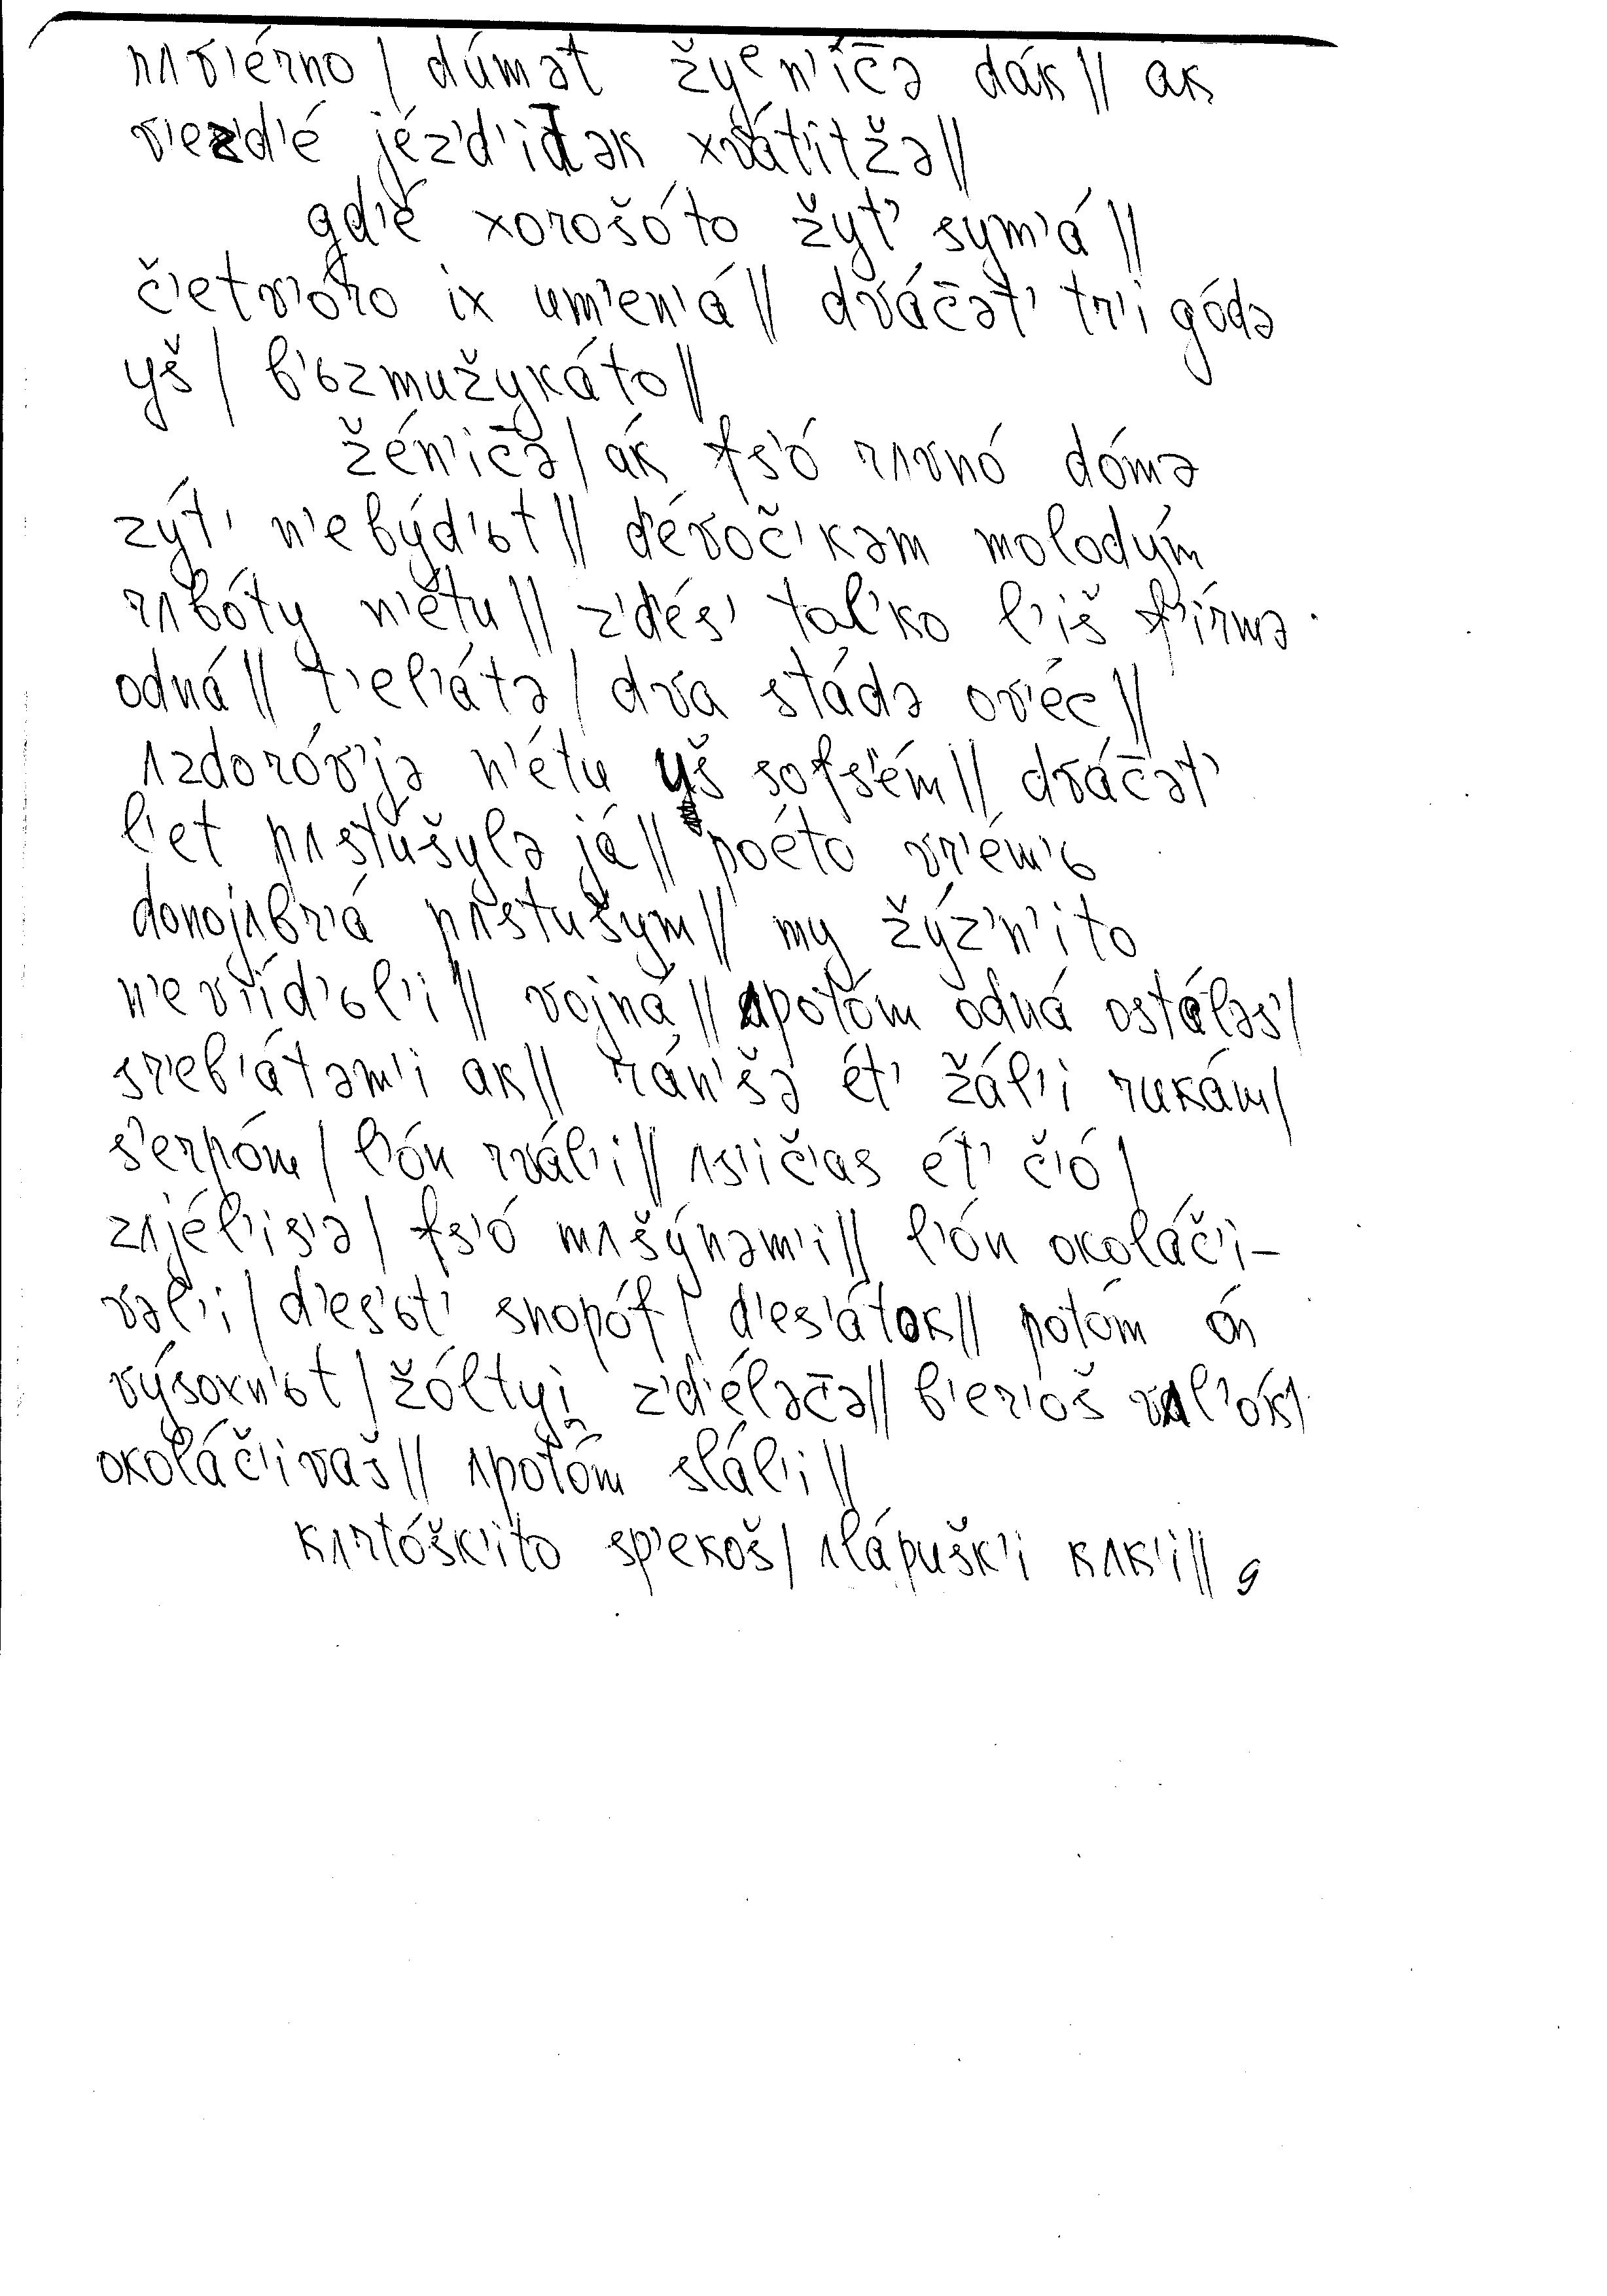 nʌv'érno / dúmət žyᵉn'íc̄ə dák // ak
v'ezd'é jézd'id̄ək xvát'itžə //
gd'é xorošóto žyt' sym'á //
č'etv'óro ix um'en'á // dvác̄ət' tr'i gódə
yš / b'ъzmužykáto //
žén'ic̄ə / ák fs'ó rʌvnó dómə
zýt' n'ebýd'ъt // d'évoč'kəm molodým
rʌbóty n'étu // z'd'és' tal'ko l'iš f'írmə
odná // t'el'átə / dva stádə ov'éc //
ʌzdoróv'jə n'étu yš sofs'ém // dvác̄ət'
l'et pʌstúšylə já // poéto vr'ém'ъ
donojʌbr'á pʌstúšym // my žýz'n'ito
n'ev'íd'ъl'i // vojná // ʌpotóm odná ostáləs' /
sr'eb'átəm'i ak // rán'šə ét' žál'i rukám /
s'erpóm / l'ón rvál'i // ʌs'ič'as ét' č'ó /
zʌjél'is'ə / fs'ó mʌšýnəm'i // l'ón okoláč'i-
vəl'i / d'es'ъt' snopóf / d'es'átək // potóm ón
výsoxn'ъt / žóltyi̯ z'd'éləc̄ə // b'er'óš vʌl'ók /
okoláč'ivaš // ʌpotóm slál'i //
kʌrtóšk'ito sp'ekoš / ʌlápušk'i kʌk'i // 9